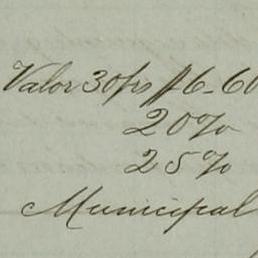 Valor 30 frs $6-60
20%
25%
Municipal